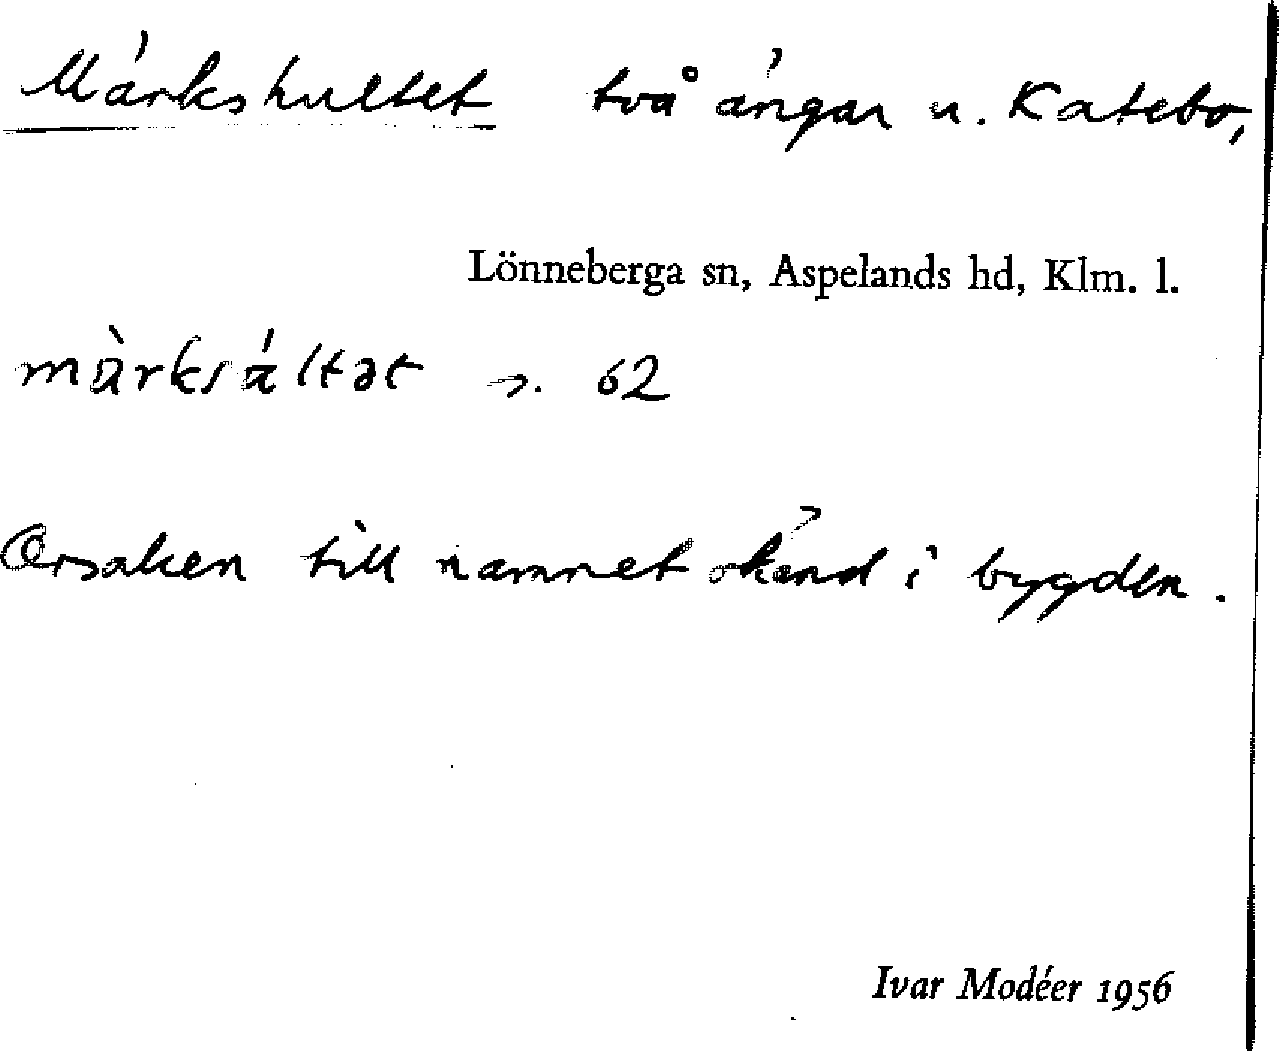 Märkshultet två ängar u. Katebo,
Lönneberga sn, Aspelands hd, Klm. l.
62
Orsaken till namnet okänd i bygden.
Ivar Modéer 1956